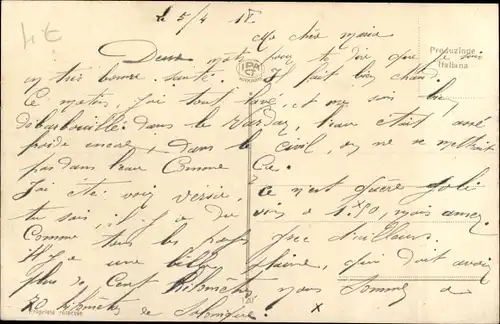 4€
le 5/4 18
Ma chère marie
Deux mots pour te dire que je suis
en très bonne santé. Il fait bien chaud
Ce matin, j'ai tout lavé, et me suis
débarbouillé dans le Vardar, l'eau était assé
froide encore, dans le civil, on ne se mettrait
pas dans l'eau Comme
J'ai été voir
ce n'est guère joli
tu sais, il y a du vois a 1.50, mais assez
Comme tous les pays grec d'ailleurs.
Il y a une belle plaine, qui doit avoir
plus de Cent kilomètres nous sommes a
70 kilomètres de Salonique. x
Produzione
Italiana
IPA
CT
Proprietà riservata
120